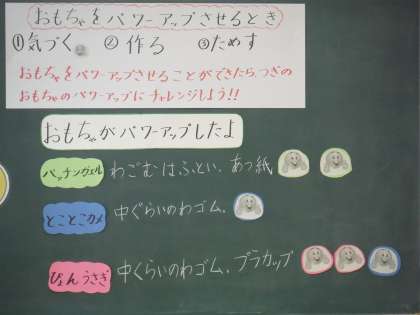 おもちゃをパワーアップさせるとき
①気づく ②作る ③ためす
おもちゃをパワーアップさせることができたら、つぎの
おもちゃのパワーアップにチャレンジしよう!!
おもちゃがパワーアップしたよ
パッチンガエル わごむはふとい、あつ紙
とことこカメ 中ぐらいのわゴム、
ぴょんうさぎ 中くらいのわゴム、プラカップ